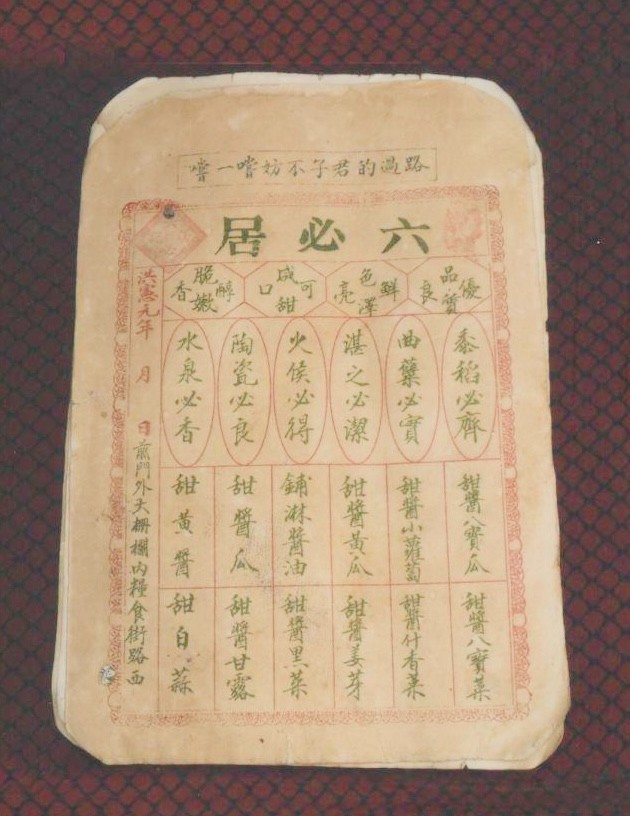 路過的君子不妨嚐一嚐
六必居
品質優良
色澤鮮亮
咸甜可口
脆嫩醇香
黍稻必齊
曲蘗必實
湛之必潔
火侯必得
陶瓷必良
水泉必香
甜醬八寶瓜
甜醬小蘿蔔
甜醬黃瓜
鋪淋醬油
甜醬瓜
甜黃醬
甜醬八寶菜
甜醬什香菜
甜醬姜芽
甜醬黑菜
甜醬甘露
甜白蒜
洪憲元年 月 日
前門外大柵欄內糧食街路西